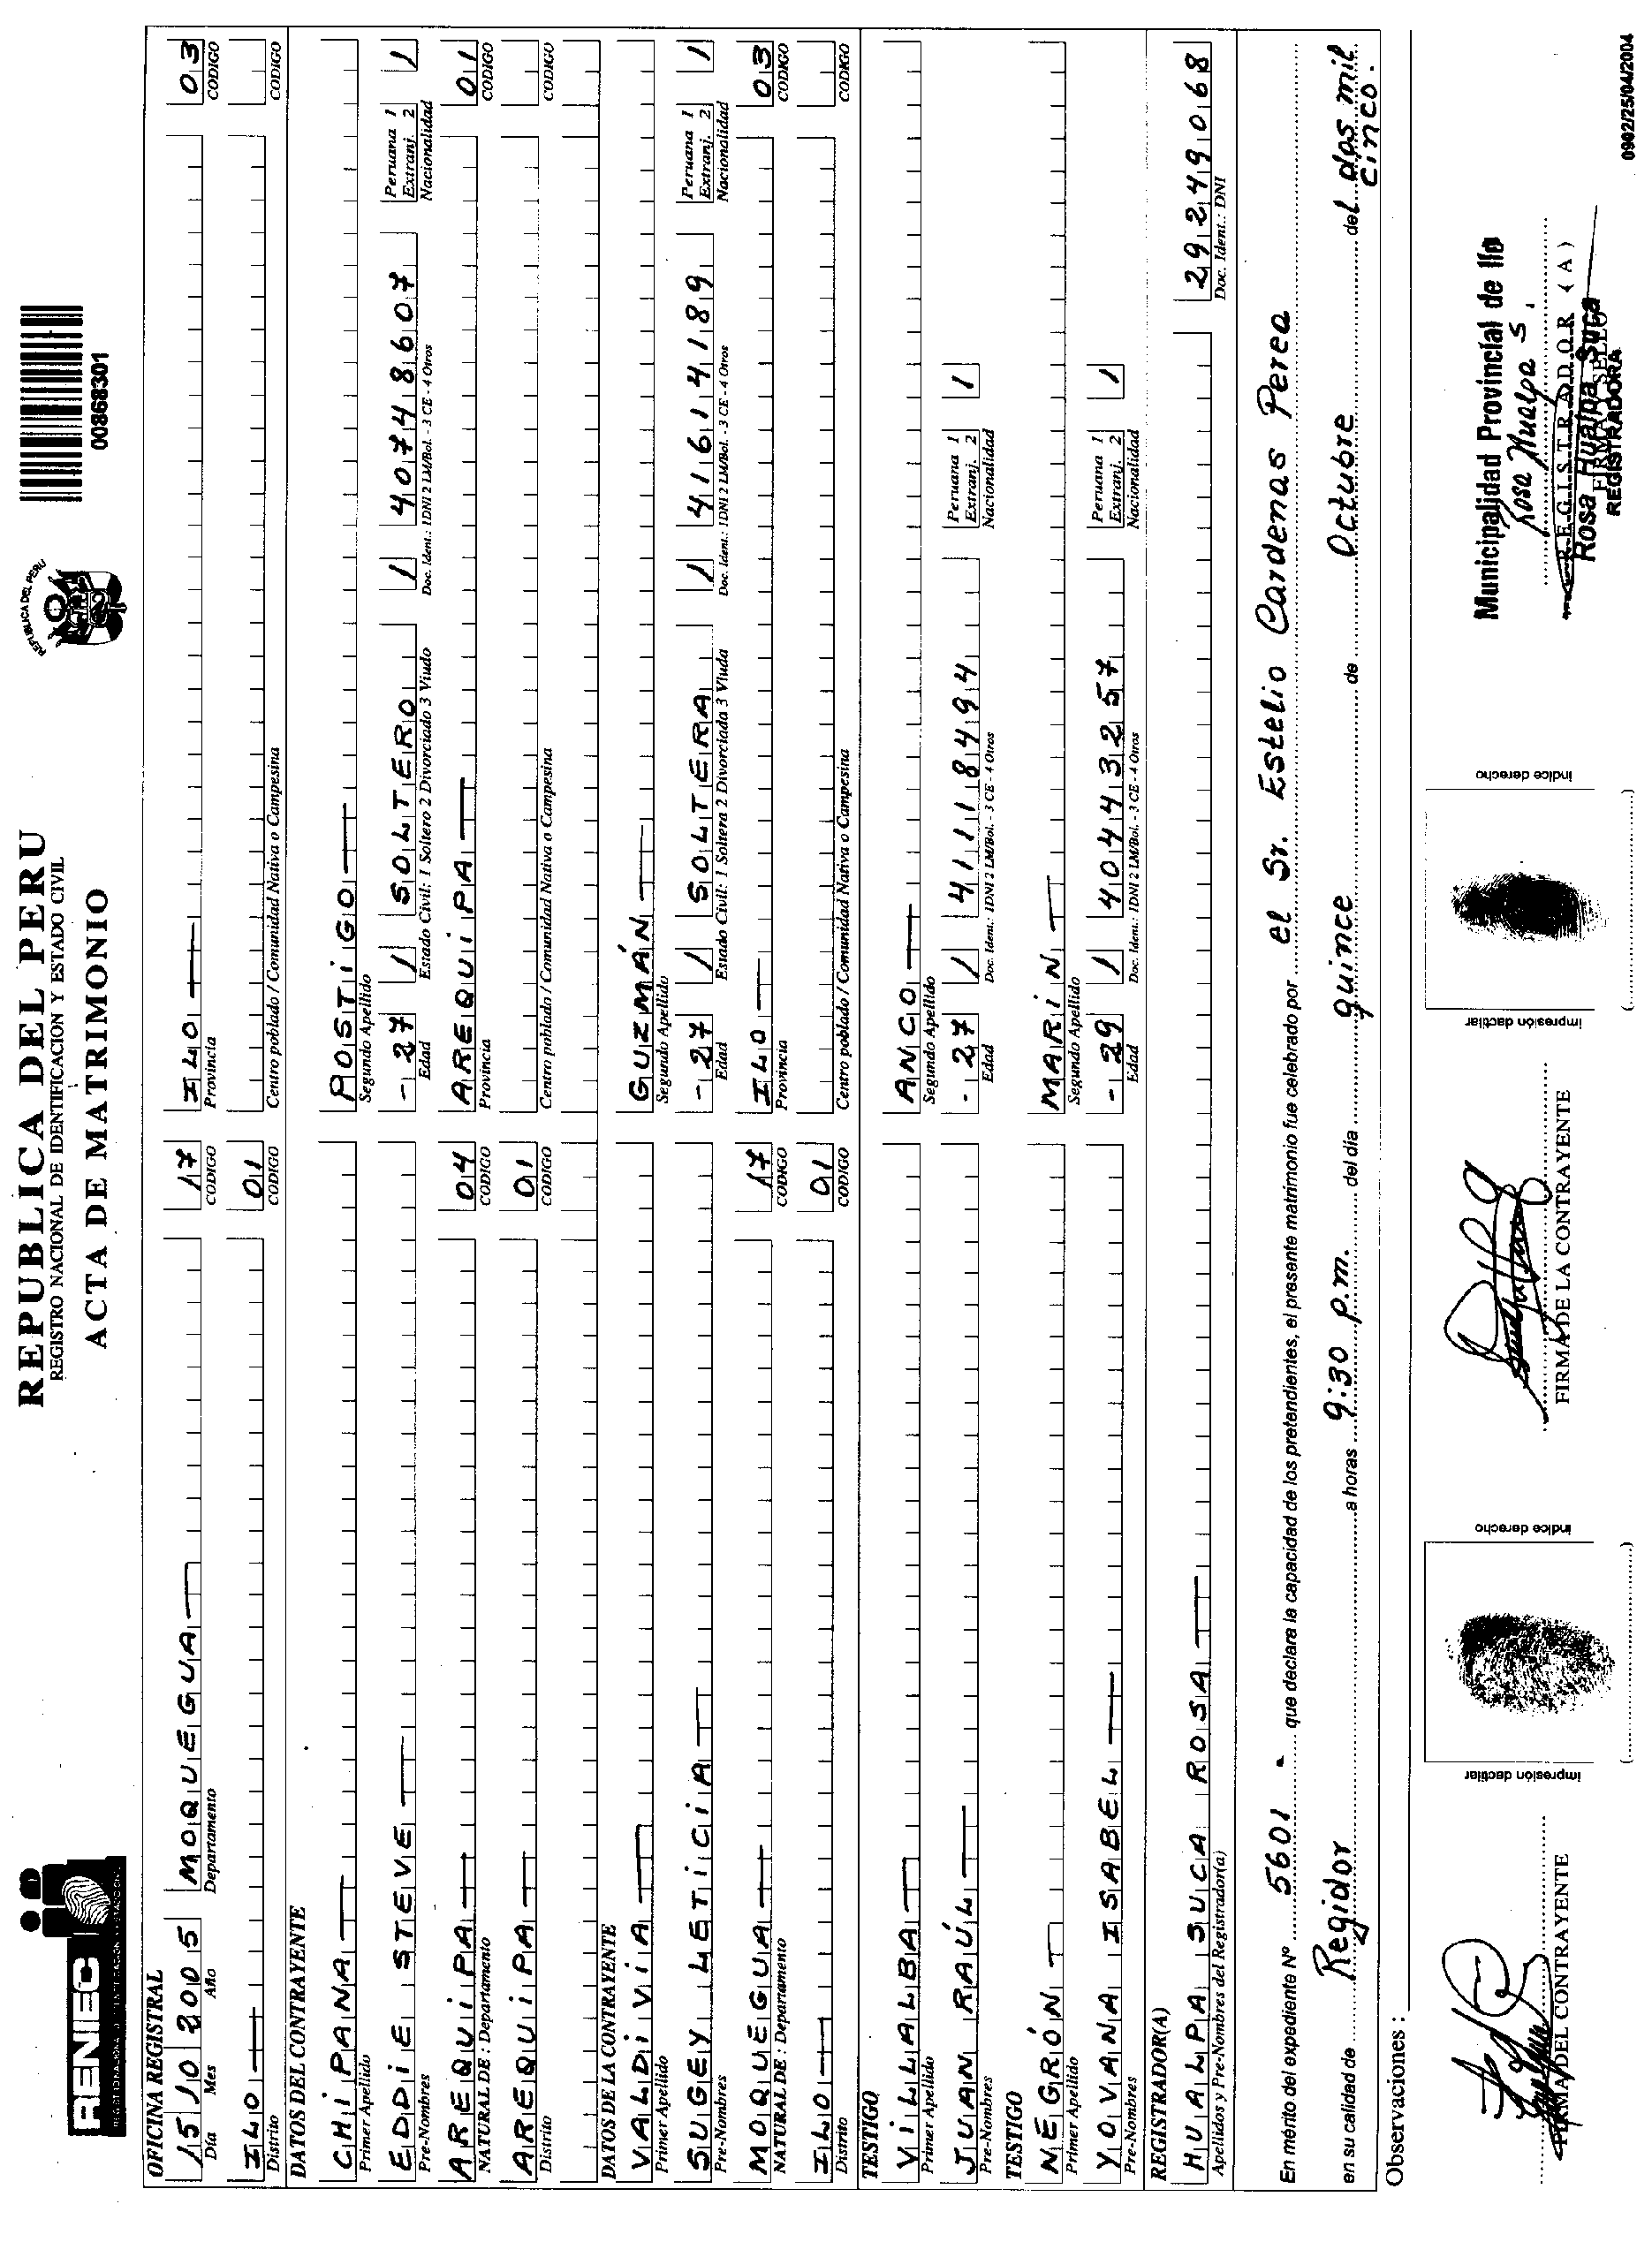 RENIEC
REPUBLICA DEL PERU
REGISTRO NACIONAL DE IDENTIFICACION Y ESTADO CIVIL
ACTA DE MATRIMONIO
REPUBLICA DEL PERU
00868301
OFICINA REGISTRAL
15 10 2005 MOQUEGUA 17 ILO 03
Día Mes Año Departamento CODIGO Provincia CODIGO
ILO 01
Distrito CODIGO Centro poblado / Comunidad Nativa o Campesina CODIGO
DATOS DEL CONTRAYENTE
CHIPANA POSTIGO
Primer Apellido Segundo Apellido
EDDIE STEVE -27 1 SOLTERO 1 40748607 Peruana 1 Extranj. 2 1
Pre-Nombres Edad Estado Civil: 1 Soltero 2 Divorciado 3 Viudo Doc. Ident.: 1DNI 2 LM/Bol. - 3 CE - 4 Otros Nacionalidad
AREQUIPA 04 AREQUIPA 01
NATURAL DE : Departamento CODIGO Provincia CODIGO
AREQUIPA 01
Distrito CODIGO Centro poblado / Comunidad Nativa o Campesina CODIGO
DATOS DE LA CONTRAYENTE
VALDIVIA GUZMÁN
Primer Apellido Segundo Apellido
SUGEY LETICIA -27 1 SOLTERA 1 41614189 Peruana 1 Extranj. 2 1
Pre-Nombres Edad Estado Civil: 1 Soltera 2 Divorciada 3 Viuda Doc. Ident.: 1DNI 2 LM/Bol. - 3 CE - 4 Otros Nacionalidad
MOQUEGUA 17 ILO 03
NATURAL DE : Departamento CODIGO Provincia CODIGO
ILO 01
Distrito CODIGO Centro poblado / Comunidad Nativa o Campesina CODIGO
TESTIGO
VILLALBA ANCO
Primer Apellido Segundo Apellido
JUAN RAÚL -27 1 41118494 Peruana 1 Extranj. 2 1
Pre-Nombres Edad Doc. Ident.: 1DNI 2 LM/Bol. - 3 CE - 4 Otros Nacionalidad
TESTIGO
NEGRÓN MARIN
Primer Apellido Segundo Apellido
YOVANA ISABEL -29 1 40443257 Peruana 1 Extranj. 2 1
Pre-Nombres Edad Doc. Ident.: 1DNI 2 LM/Bol. - 3 CE - 4 Otros Nacionalidad
REGISTRADOR(A)
HUALPA SUCA ROSA 29249068
Apellidos y Pre-Nombres del Registrador(a) Doc. Ident.: DNI
En mérito del expediente Nº 5601 - que declara la capacidad de los pretendientes, el presente matrimonio fue celebrado por el Sr. Estelio Cardenas Perea
en su calidad de Regidor a horas 9:30 p.m. del día quince de Octubre del dos mil
cinco.
Observaciones :
FIRMA DEL CONTRAYENTE
impresión dactilar
índice derecho
FIRMA DE LA CONTRAYENTE
impresión dactilar
índice derecho
Municipalidad Provincial de Ilo
Rosa Hualpa S.
REGISTRADOR (A)
Rosa Hualpa Suca
FIRMA Y SELLO
REGISTRADORA
0902/25/04/2004